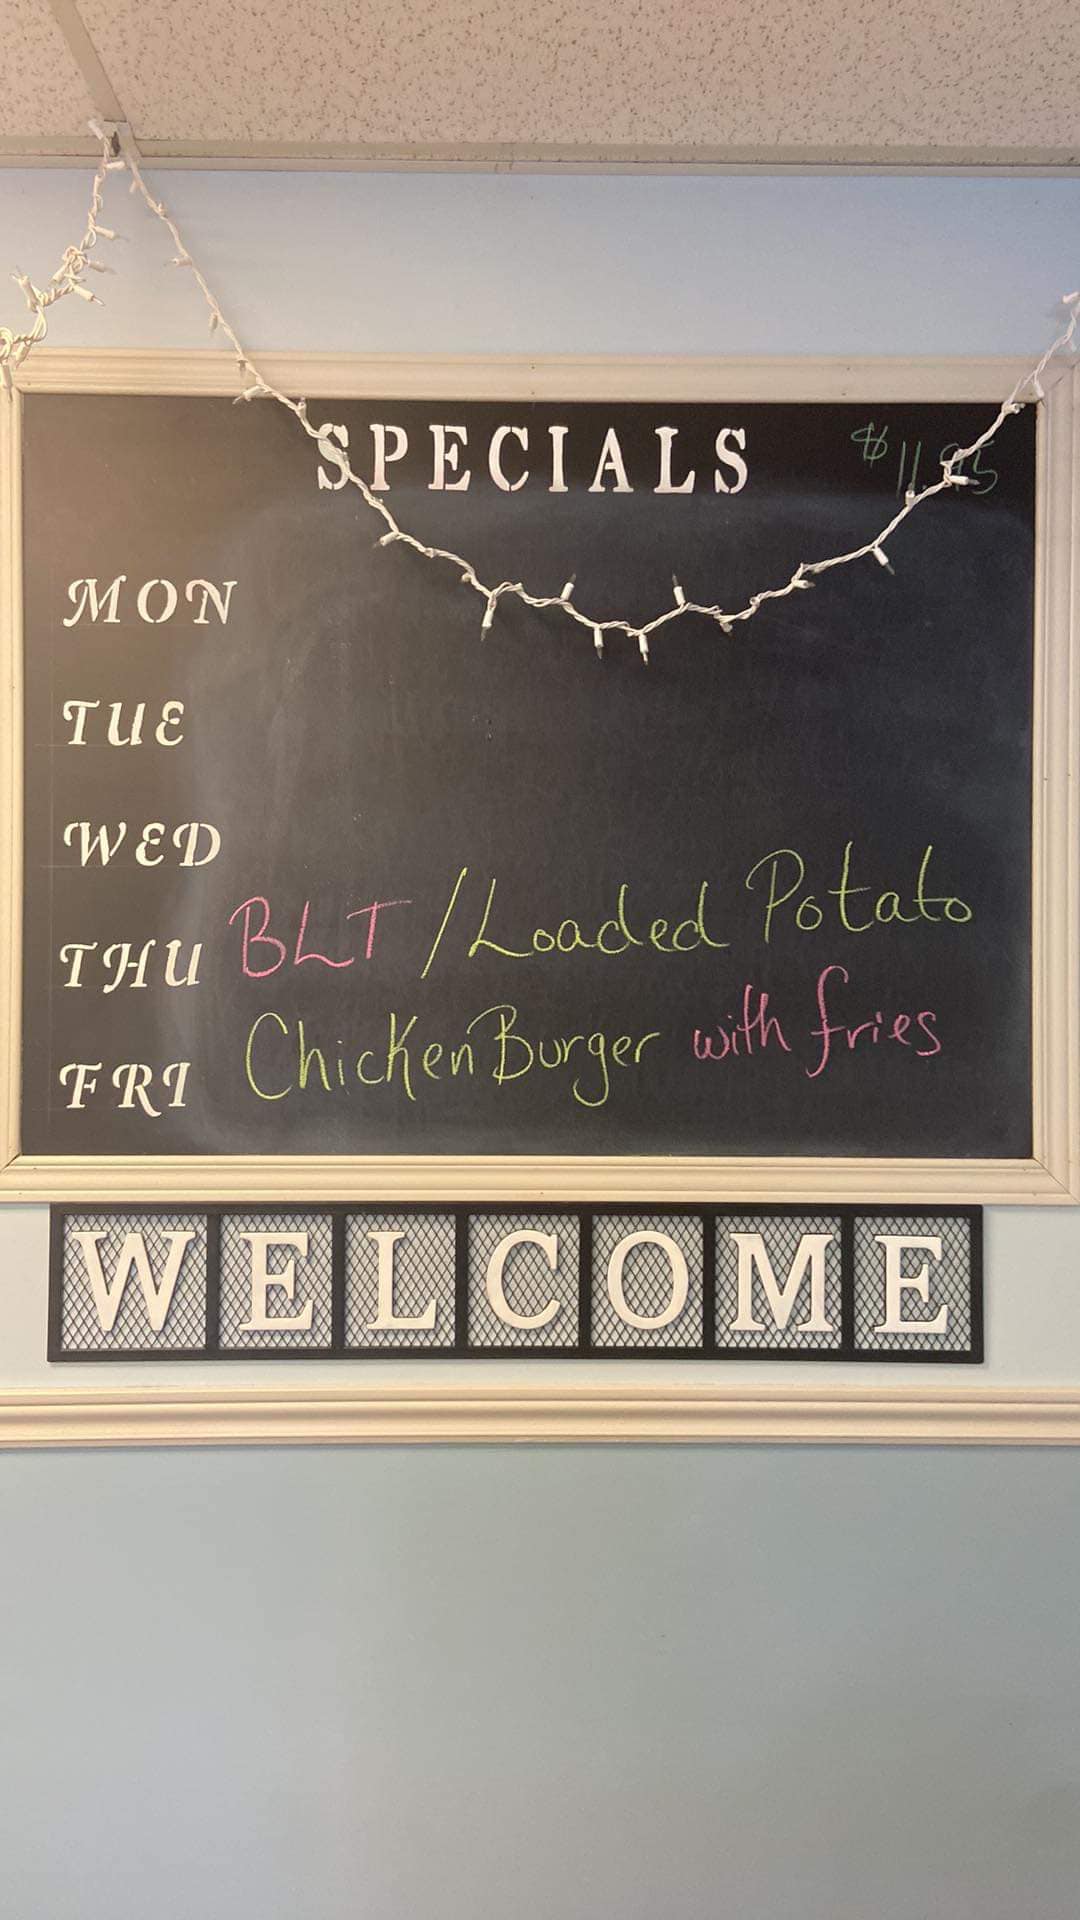 SPECIALS $11.95
MON
TUE
WED
THU BLT / Loaded Potato
FRI Chicken Burger with fries
WELCOME